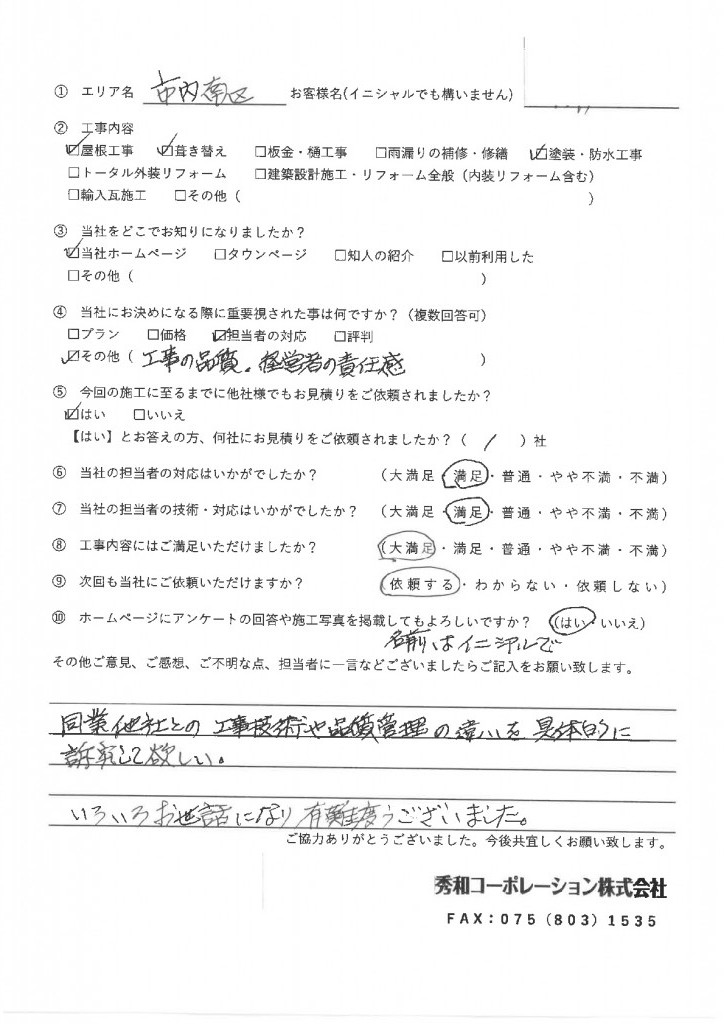 ① エリア名 市内南区 お客様名(イニシャルでも構いません)
② 工事内容
☑屋根工事 ☑葺き替え □板金・樋工事 □雨漏りの補修・修繕 ☑塗装・防水工事
□トータル外装リフォーム □建築設計施工・リフォーム全般（内装リフォーム含む）
□輸入瓦施工 □その他（ ）
③ 当社をどこでお知りになりましたか？
☑当社ホームページ □タウンページ □知人の紹介 □以前利用した
□その他（ ）
④ 当社にお決めになる際に重要視された事は何ですか？（複数回答可）
□プラン □価格 ☑担当者の対応 □評判
☑その他（ 工事の品質。経営者の責任感 ）
⑤ 今回の施工に至るまでに他社様でもお見積りをご依頼されましたか？
☑はい □いいえ
【はい】とお答えの方、何社にお見積りをご依頼されましたか？（ 1 ）社
⑥ 当社の担当者の対応はいかがでしたか？ （大満足・満足・普通・やや不満・不満）
⑦ 当社の担当者の技術・対応はいかがでしたか？ （大満足・満足・普通・やや不満・不満）
⑧ 工事内容にはご満足いただけましたか？ （大満足・満足・普通・やや不満・不満）
⑨ 次回も当社にご依頼いただけますか？ （依頼する・わからない・依頼しない）
⑩ ホームページにアンケートの回答や施工写真を掲載してもよろしいですか？ （はい・いいえ）
名前はイニシャルで
その他ご意見、ご感想、ご不明な点、担当者に一言などございましたらご記入をお願い致します。
同業他社との工事技術や品質管理の違いを具体的に
訴求して欲しい。
いろいろお世話になり有難度うございました。
ご協力ありがとうございました。今後共宜しくお願い致します。
秀和コーポレーション株式会社
FAX：075（803）1535